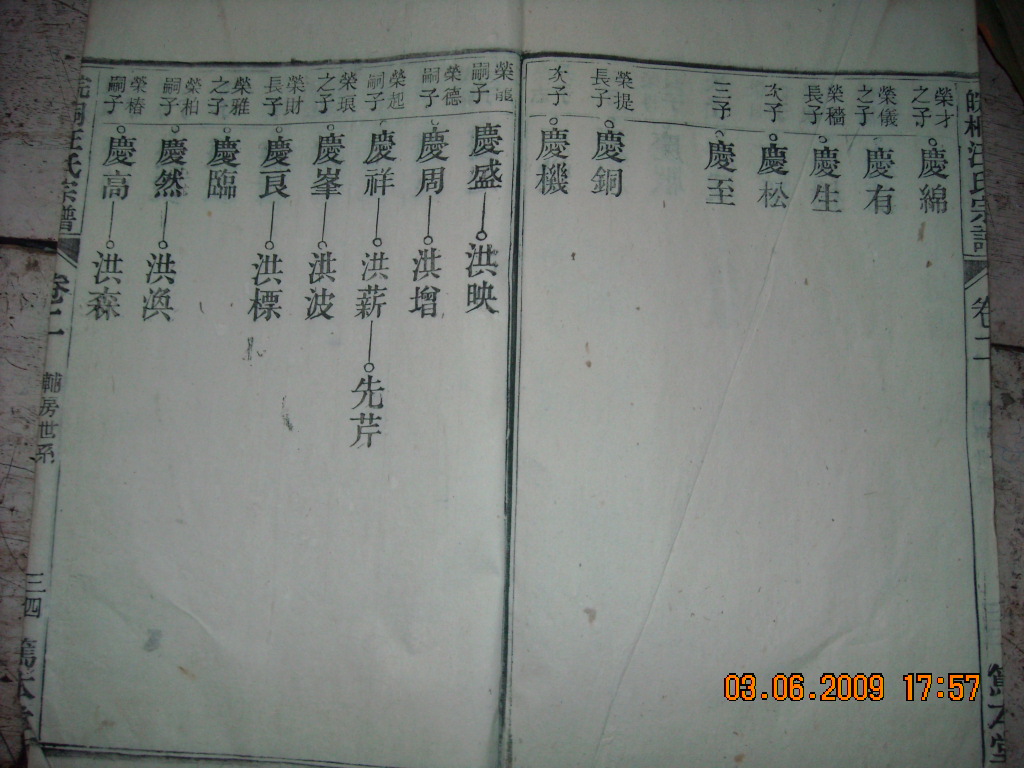 皖桐汪氏宗譜 卷二
篤本堂
榮才之子 慶綿
榮儀之子 慶有
榮穡長子 慶生
次子 慶松
三子 慶至
榮提長子 慶銅
次子 慶機
榮龍嗣子 慶盛 洪映
榮德嗣子 慶周 洪增
榮超嗣子 慶祥 洪薪 先芹
榮琅之子 慶峯 洪波
榮財長子 慶良 洪標
榮雅之子 慶臨
榮柏嗣子 慶然 洪渙
榮椿嗣子 慶高 洪森
皖桐汪氏宗譜 卷二 輔房世系 三四 篤本堂
03.06.2009 17:57